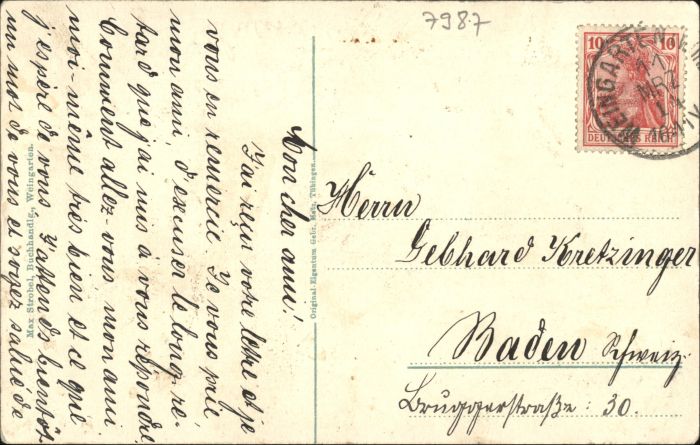 7987
Mon cher ami!
J'ai reçu votre lettre et je
vous en remercie. Je vous prie
mon ami d'excuser le long re-
tard que j'ai mis à vous répondre.
Comment allez-vous mon ami
moi-même très bien et ce que
j'espère de vous J'attends bientôt
un mot de vous et soyez salué de
Max Strobel, Buchhandlg., Weingarten.
Original-Eigentum Gebr. Metz, Tübingen.
10 10
DEUTSCHES REICH
WEINGARTEN
11
MRZ
14
Herrn
Gebhard Kretzinger
Baden Schweiz
Bruggerstraße: 30.